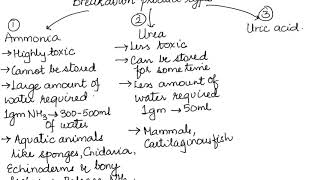 Breakdown product type
① ② ③
Ammonia Urea Uric acid
→ Highly toxic
→ Cannot be stored
→ Large amount of
water required
1gm NH₃ → 300-500ml
of water
→ Aquatic animals
like sponges, Cnidaria,
Echinoderms & bony
→ Less toxic
→ Can be stored
for some time
→ Less amount of
water required
1gm → 50ml
→ Mammals,
Cartilaginous fish